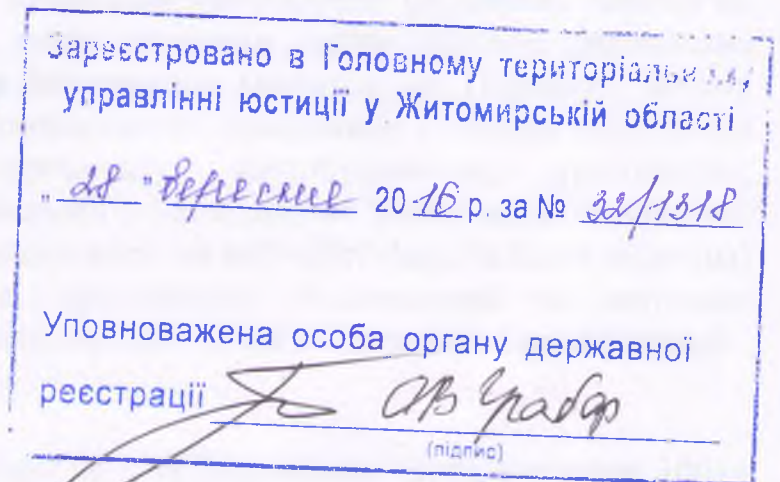 Зареєстровано в Головному територіальному
управлінні юстиції у Житомирській області
„ 28 " вересня 2016 р. за № 32/1318
Уповноважена особа органу державної
реєстрації
(підпис)